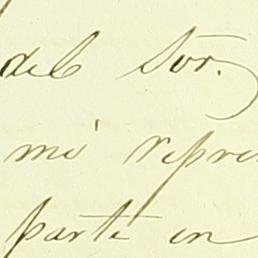 del Sor.
mi repre
parte en